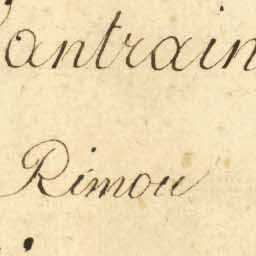 antrain
Rimou